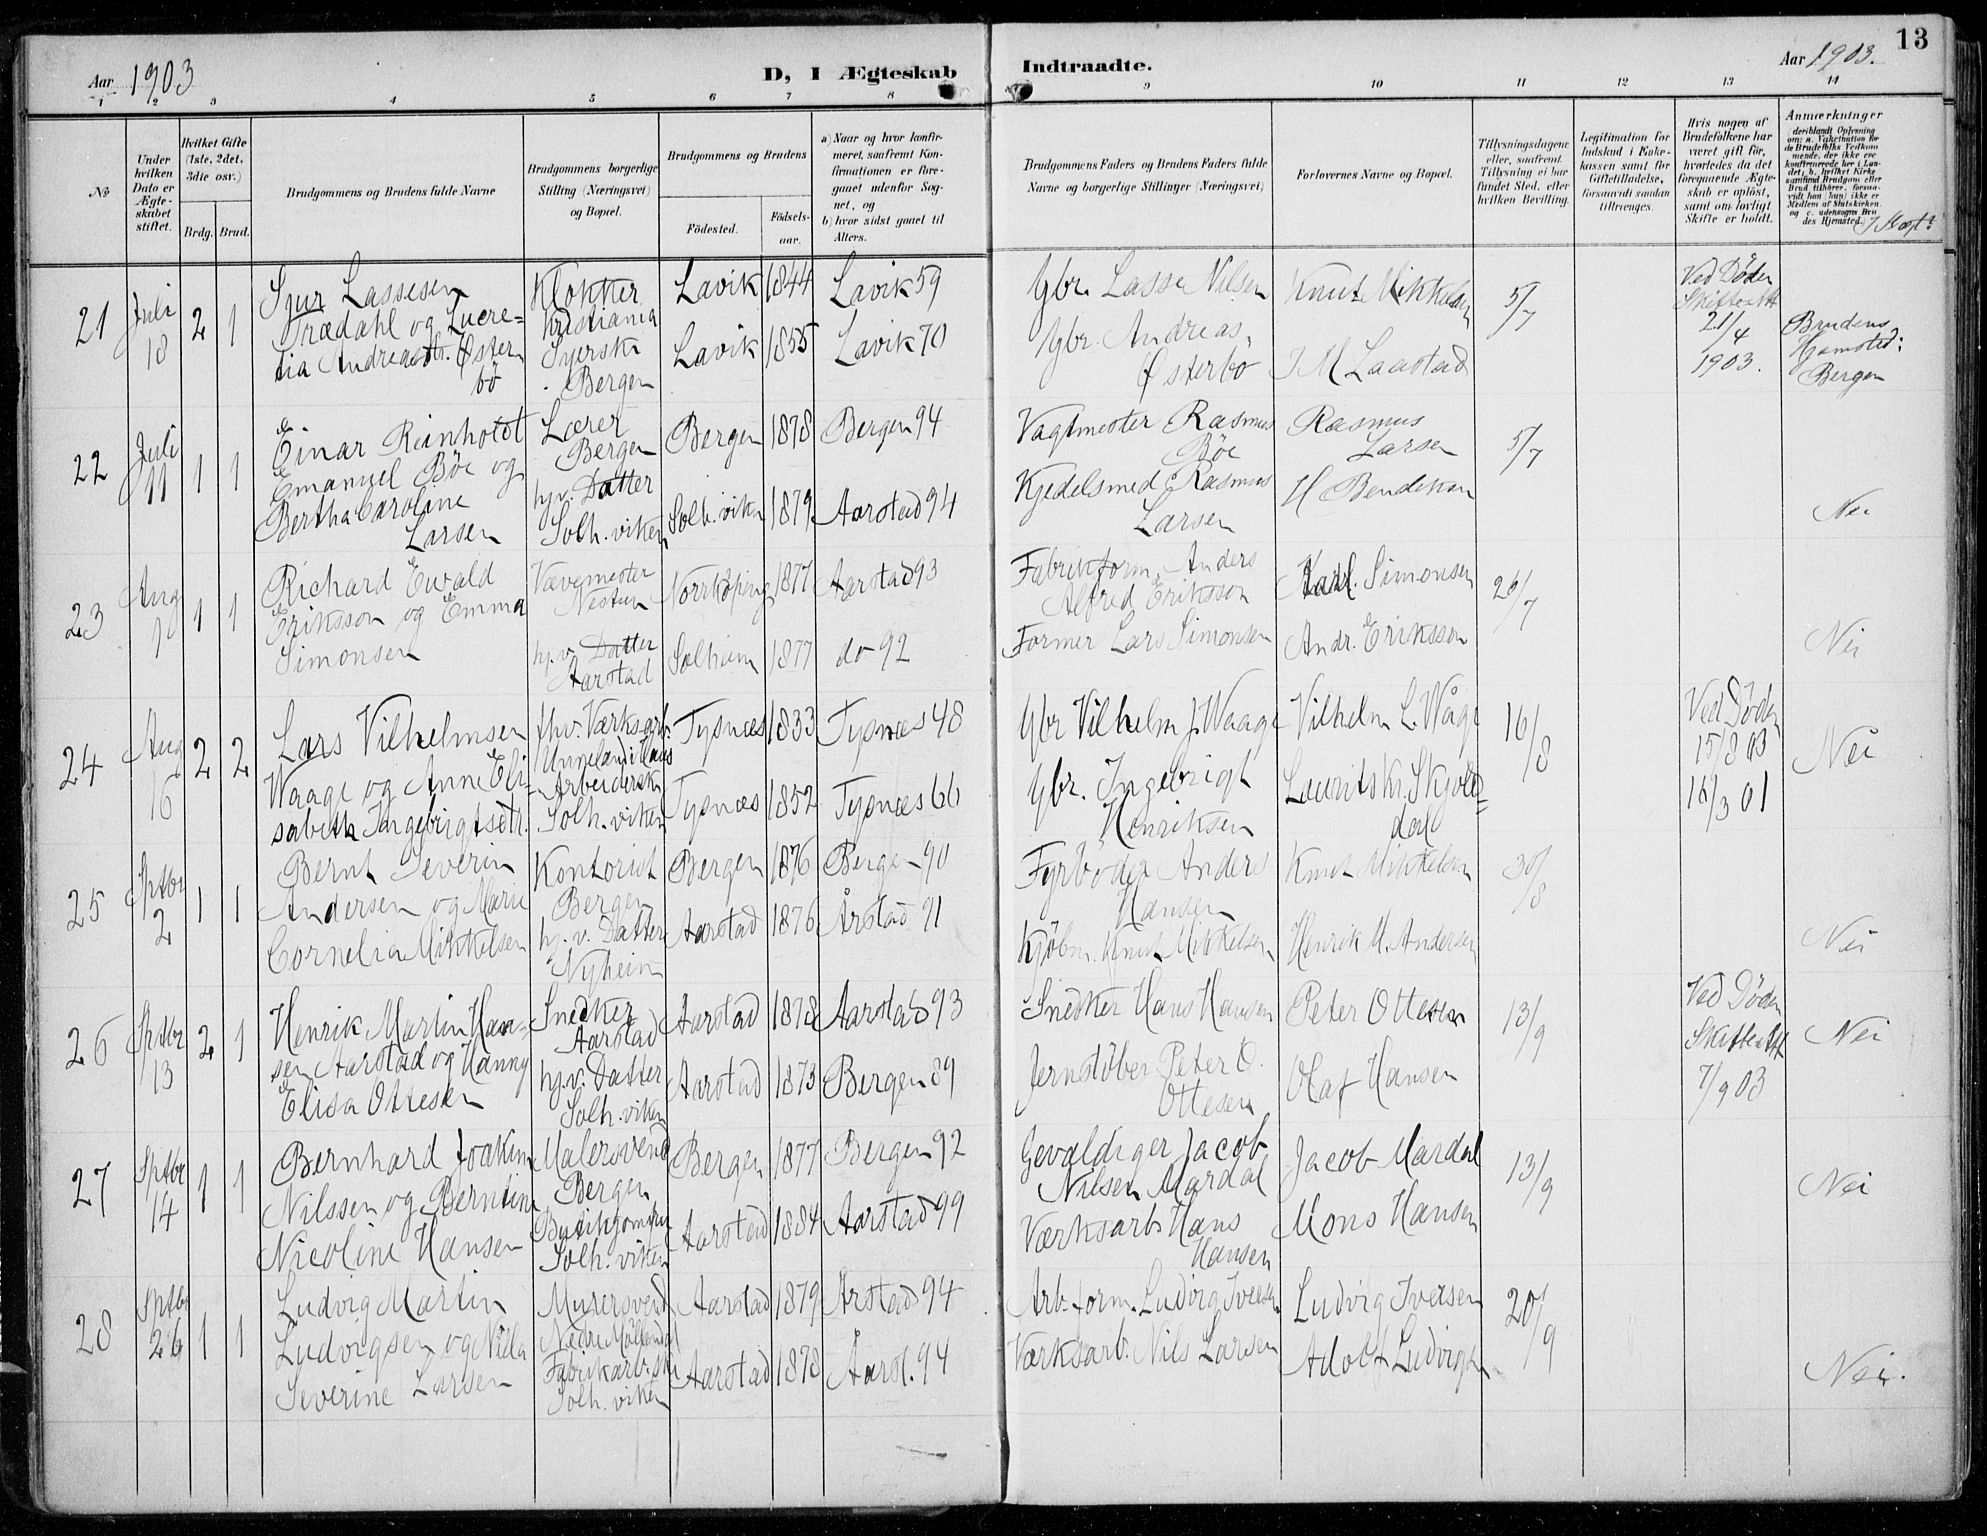 Aar 1903
D, I Ægteskab Indtraadte.
Aar 1903.
13
1 2 3 4 5 6 7 8 9 10 11 12 13 14
No
Under hvilken Dato er Ægteskabet stiftet.
Hvilket Gifte (1ste, 2det, 3die osv.)
Brdg. Brud.
Brudgommens og Brudens fulde Navne
Brudgommens borgerlige Stilling (Næringsvei) og Bopæl.
Brudgommens og Brudens
Fødested.
Fødselsaar.
a) Naar og hvor konfirmeret, saafremt Konfirmationen er foregaaet udenfor Sognet, og
b) hvor sidst gaaet til Alters.
Brudgommens Faders og Brudens Faders fulde Navne og borgerlige Stillinger (Næringsvei)
Forlovernes Navne og Bopæl.
Tillysningsdagene eller, saafremt Tillysning ei har fundet Sted, efter hvilken Bevilling.
Legitimation for Indskud i Enkekassen samt for Giftetilladelse, forsaavidt saadan tiltrænges.
Hvis nogen af Brudefolkene har været gift før, hvorledes da det foregaaende Ægteskab er opløst, samt om lovligt Skifte er holdt.
Anmærkninger
21 Juli 18 2 1
Sjur Lassesen
Trædahl og Lucre=
tia Andreasdtr. Øster
bö
Klokker
Kristiania
Syerske
Bergen
Lavik 1844 Lavik 59
Lavik 1855 Lavik 70
Gbr. Lasse Nilsen
Gbr. Andreas
Østerbö
Knut Mikkelsen
J M Laastad
5/7
Ved Döden
Skifteatt
21/4
1903.
Brudens
Hjemsted:
Bergen
22 Juli 11 1 1
Einar Reinholdt
Emanuel Böe og
Bertha Caroline
Larsen
Lærer
Bergen
hj.v. Datter
Solh.viken
Bergen 1878 Bergen 94
Solh.viken 1879 Aarstad 94
Vagtmester Rasmus
Böe
Kjedelsmed Rasmus
Larsen
Rasmus
Larsen
H Bendiksen
5/7
Nei
23 Aug 1 1 1
Richard Ewald
Eriksson og Emma
Simonsen
Vævemester
Nestun
hj.v. Datter
Aarstad
Norrköping 1877 Aarstad 93
Solheim 1877 do 92
Fabrikform. Anders
Alfred Eriksson
Former Lars Simonsen
Karl Simonsen
Andr. Eriksson
26/7
Nei
24 Aug 16 2 2
Lars Vilhelmsen
Waage og Anne Eli=
sabeth Ingebrigtsdtr.
fhv. Værksarb.
Arbeiderske
Solh.viken
Tysnæs 1833 Tysnæs 48
Tysnæs 1852 Tysnæs 66
Gbr Vilhelm J. Waage
Gbr. Ingebrigt
Henriksen
Vilhelm L. Wåge
Laurits Kr. Skjold=
dal
16/8
Ved Döden
15/8 03
16/3 01
Nei
25 Sptbr 2 1 1
Bernt Severin
Andersen og Marie
Cornelia Mikkelsen
Kontorist
Bergen
hj.v. Datter
Nyheim
Bergen 1876 Bergen 90
Aarstad 1876 Årstad 91
Fyrböder Anders
Hansen
Kjöbm. Knut Mikkelsen
Knut Mikkelsen
Henrik M. Andersen
30/8
Nei
26 Sptbr 13 2 1
Henrik Martin Han=
sen Aarstad og Hanny
Elisa Ottesen
Snedker
Aarstad
hj.v. Datter
Solh.viken
Aarstad 1878 Aarstad 93
Aarstad 1873 Bergen 89
Snedker Hans Hansen
Jernstöber Peter O.
Ottesen
Peter Ottesen
Olaf Hansen
13/9
Ved Döden
Skifteatt
7/9 03
Nei
27 Sptbr 14 1 1
Bernhard Joakim
Nilssen og Berntine
Nicoline Hansen
Malersvend
Bergen
Butikjomfru
Solh.viken
Bergen 1877 Bergen 92
Aarstad 1884 Aarstad 99
Gevaldiger Jacob
Nilsen Mardal
Værksarb. Hans
Hansen
Jacob Mardal
Mons Hansen
13/9
Nei
28 Sptbr 26 1 1
Ludvig Martin
Ludvigsen og Nilla
Severine Larsen
Murersvend
Nedre Möllendal
Fabrikarb.ske
Solh.viken
Aarstad 1879 Årstad 94
Aarstad 1878 Aarst. 94
Arb.form. Ludvig Iversen
Værksarb. Nils Larsen
Ludvig Iversen
Adolf Ludvigsen
20/9
Nei.